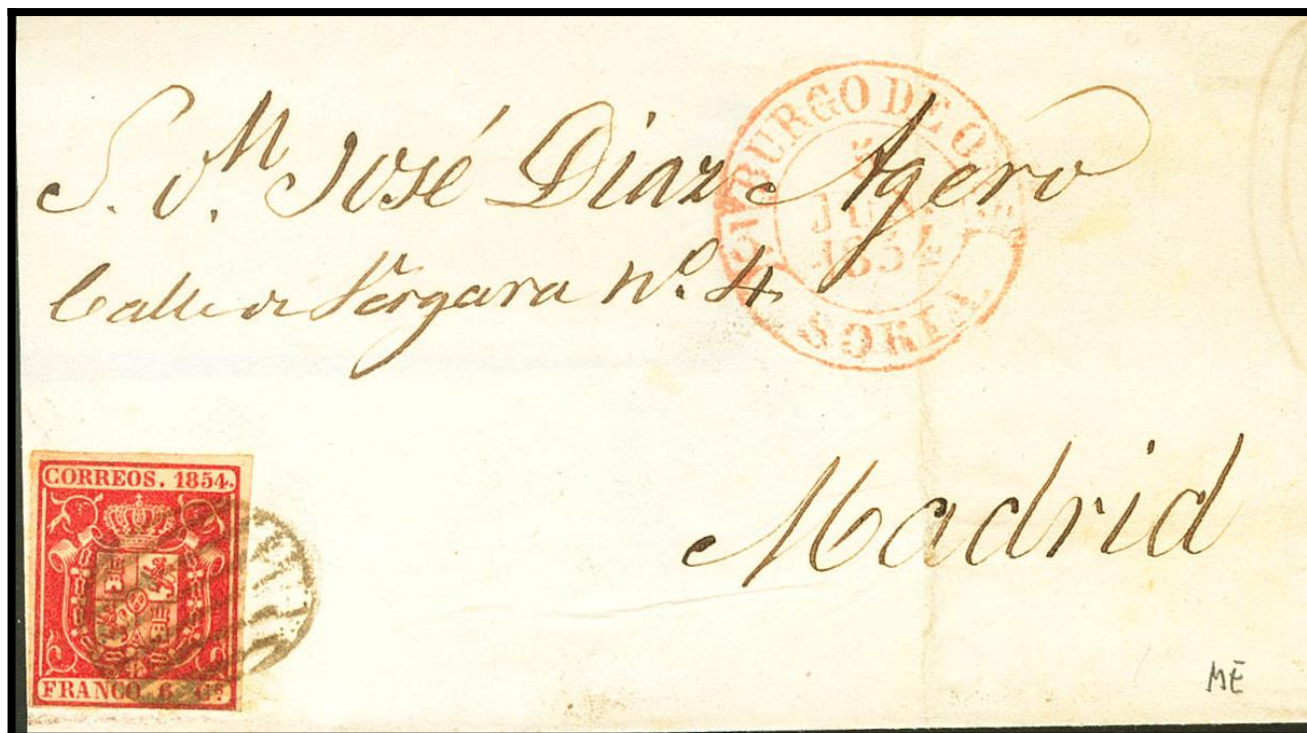 S. D. M José Diaz Agero
Calle de Vergara Nº. 4.
Madrid
BURGO DE O
5
1854
SORIA
CORREOS. 1854.
FRANCO. 6 Cs.
ME